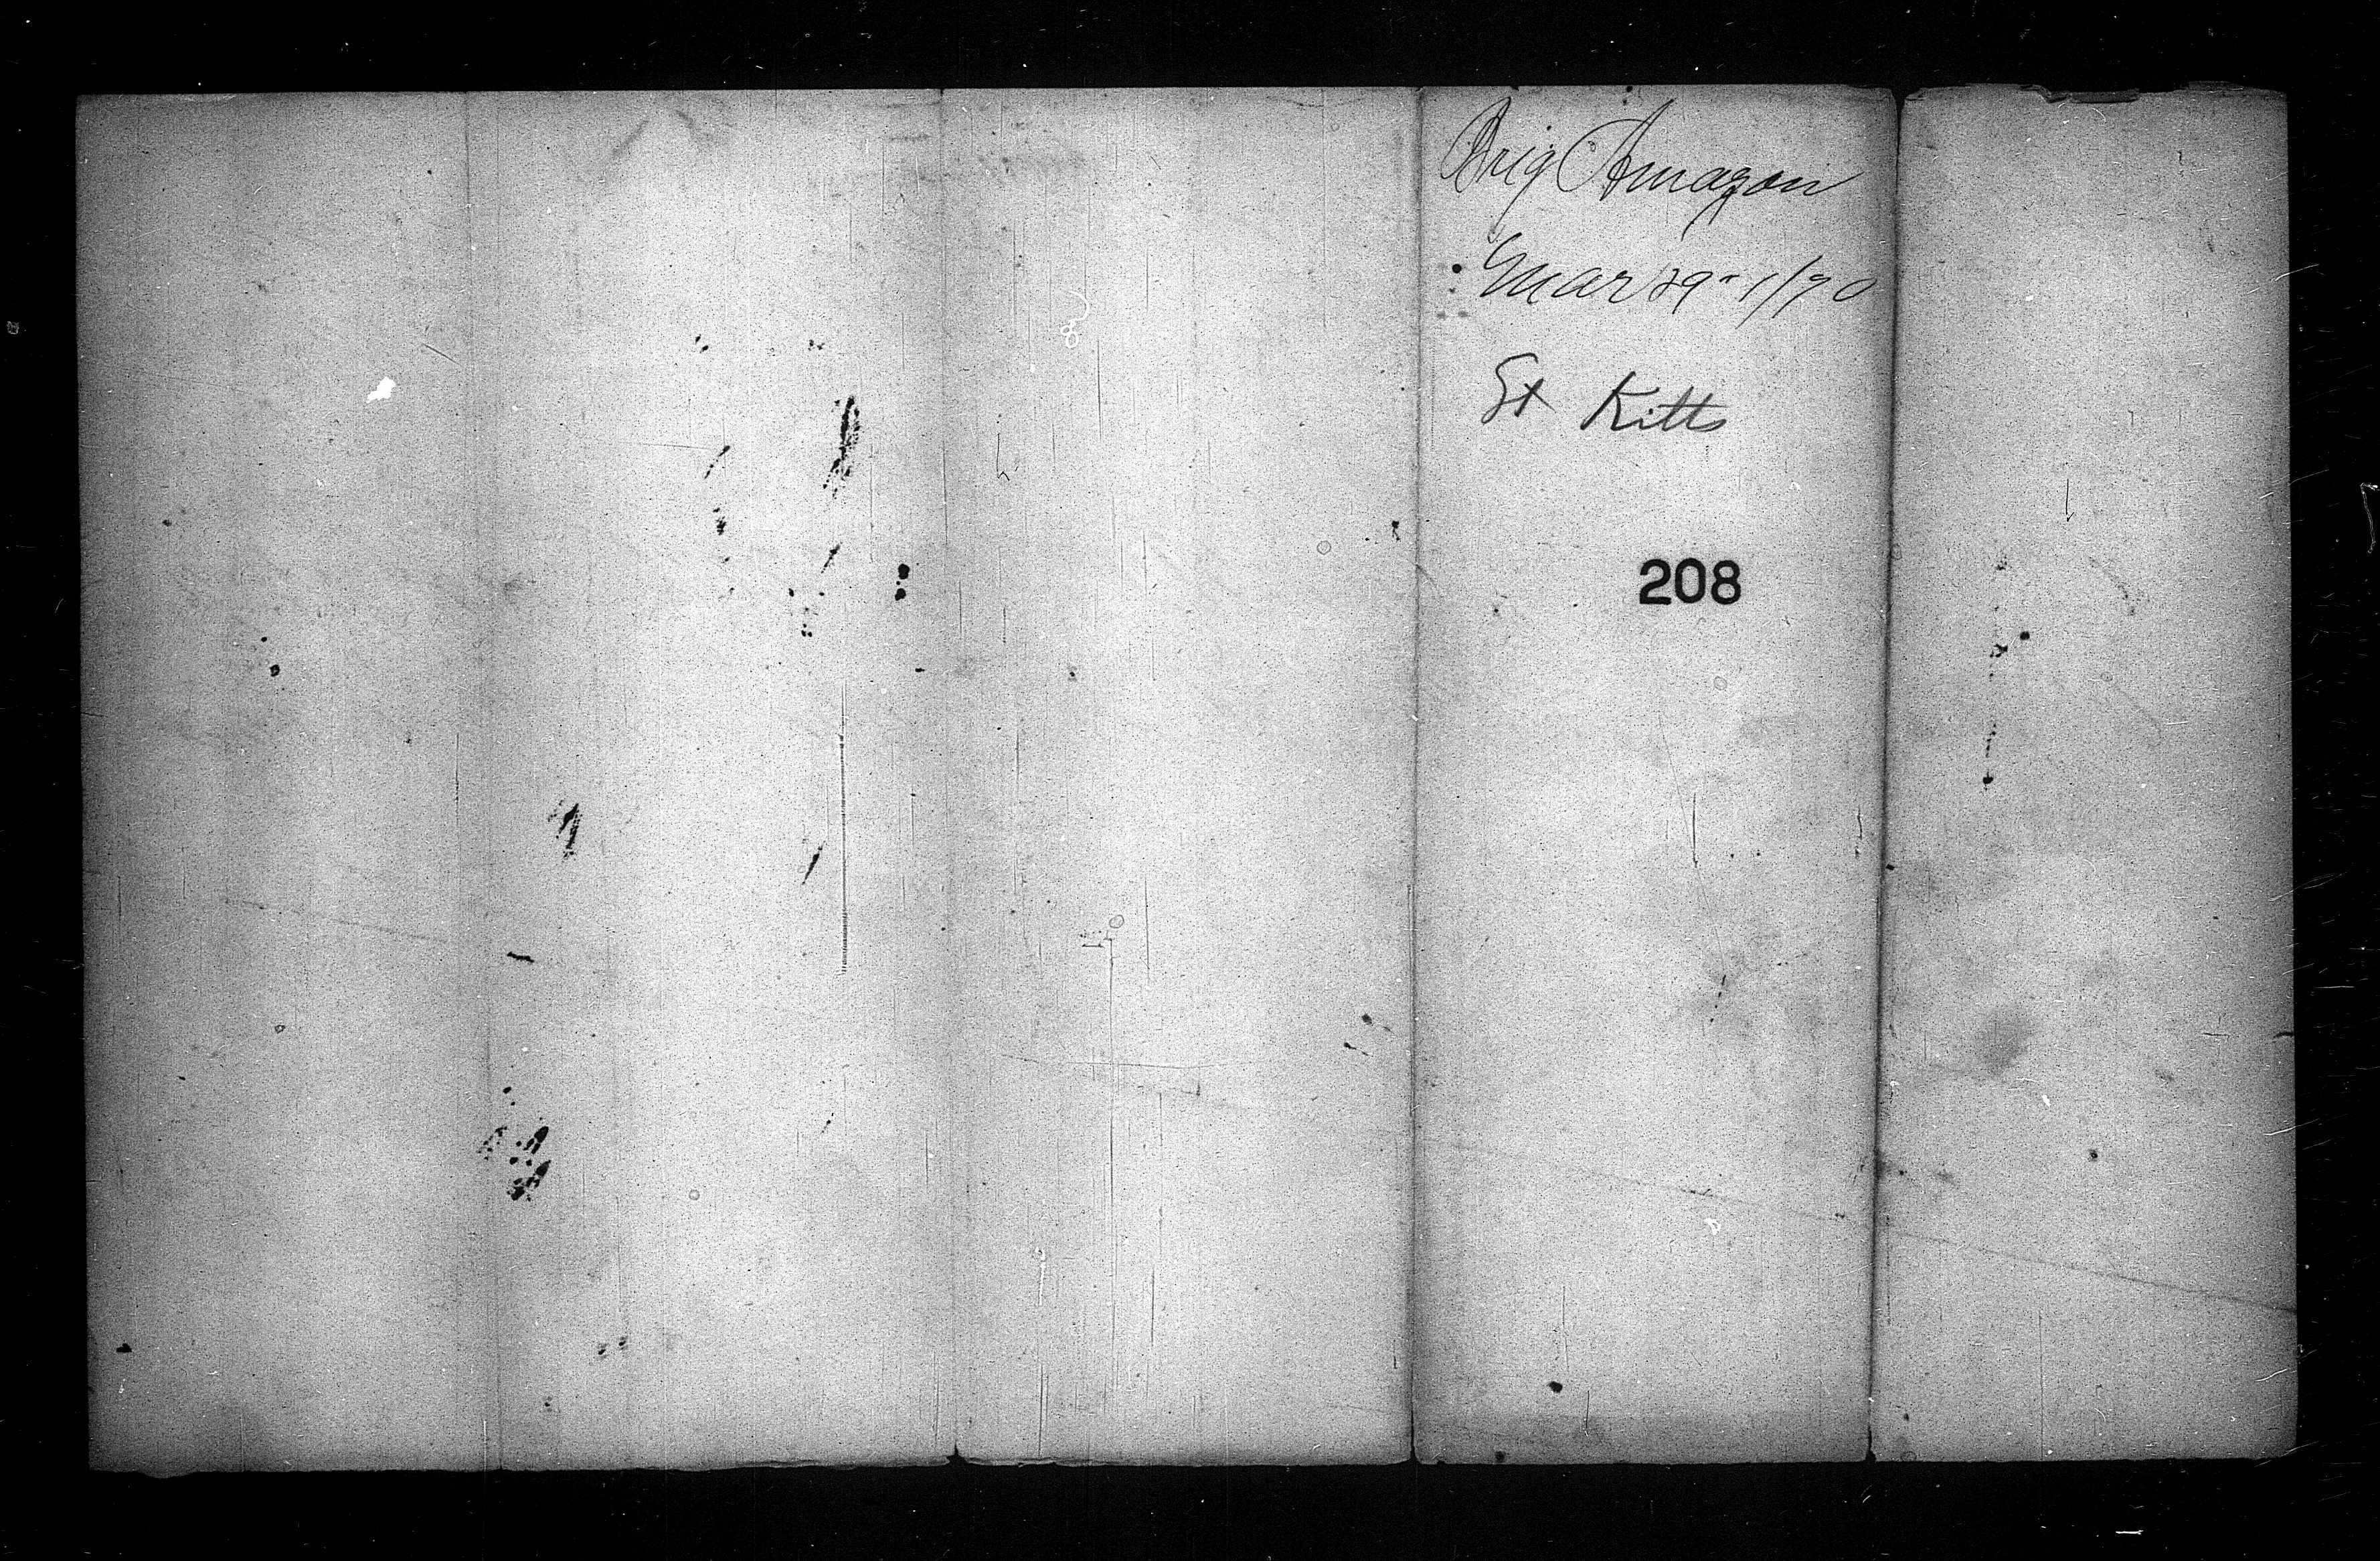 Brig Amazon
Mar 29" 1/90
St Kitts
208